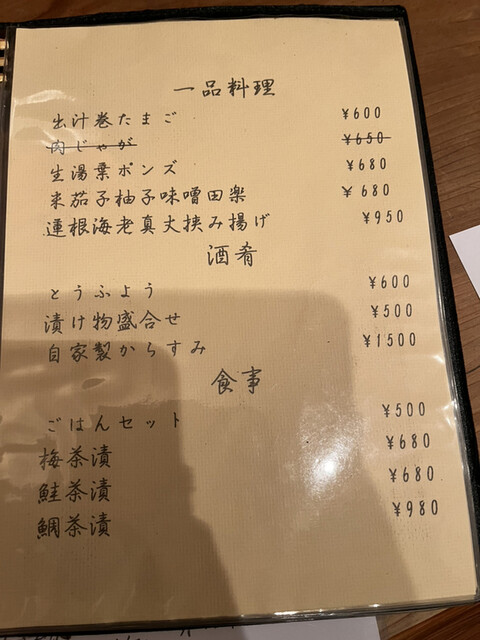 一品料理
出汁巻たまご ¥600
肉じゃが ¥650
生湯葉ポンズ ¥680
米茄子柚子味噌田楽 ¥680
蓮根海老真丈挟み揚げ ¥950
酒肴
とうふよう ¥600
漬け物盛合せ ¥500
自家製からすみ ¥1500
食事
ごはんセット ¥500
梅茶漬 ¥680
鮭茶漬 ¥680
鯛茶漬 ¥980